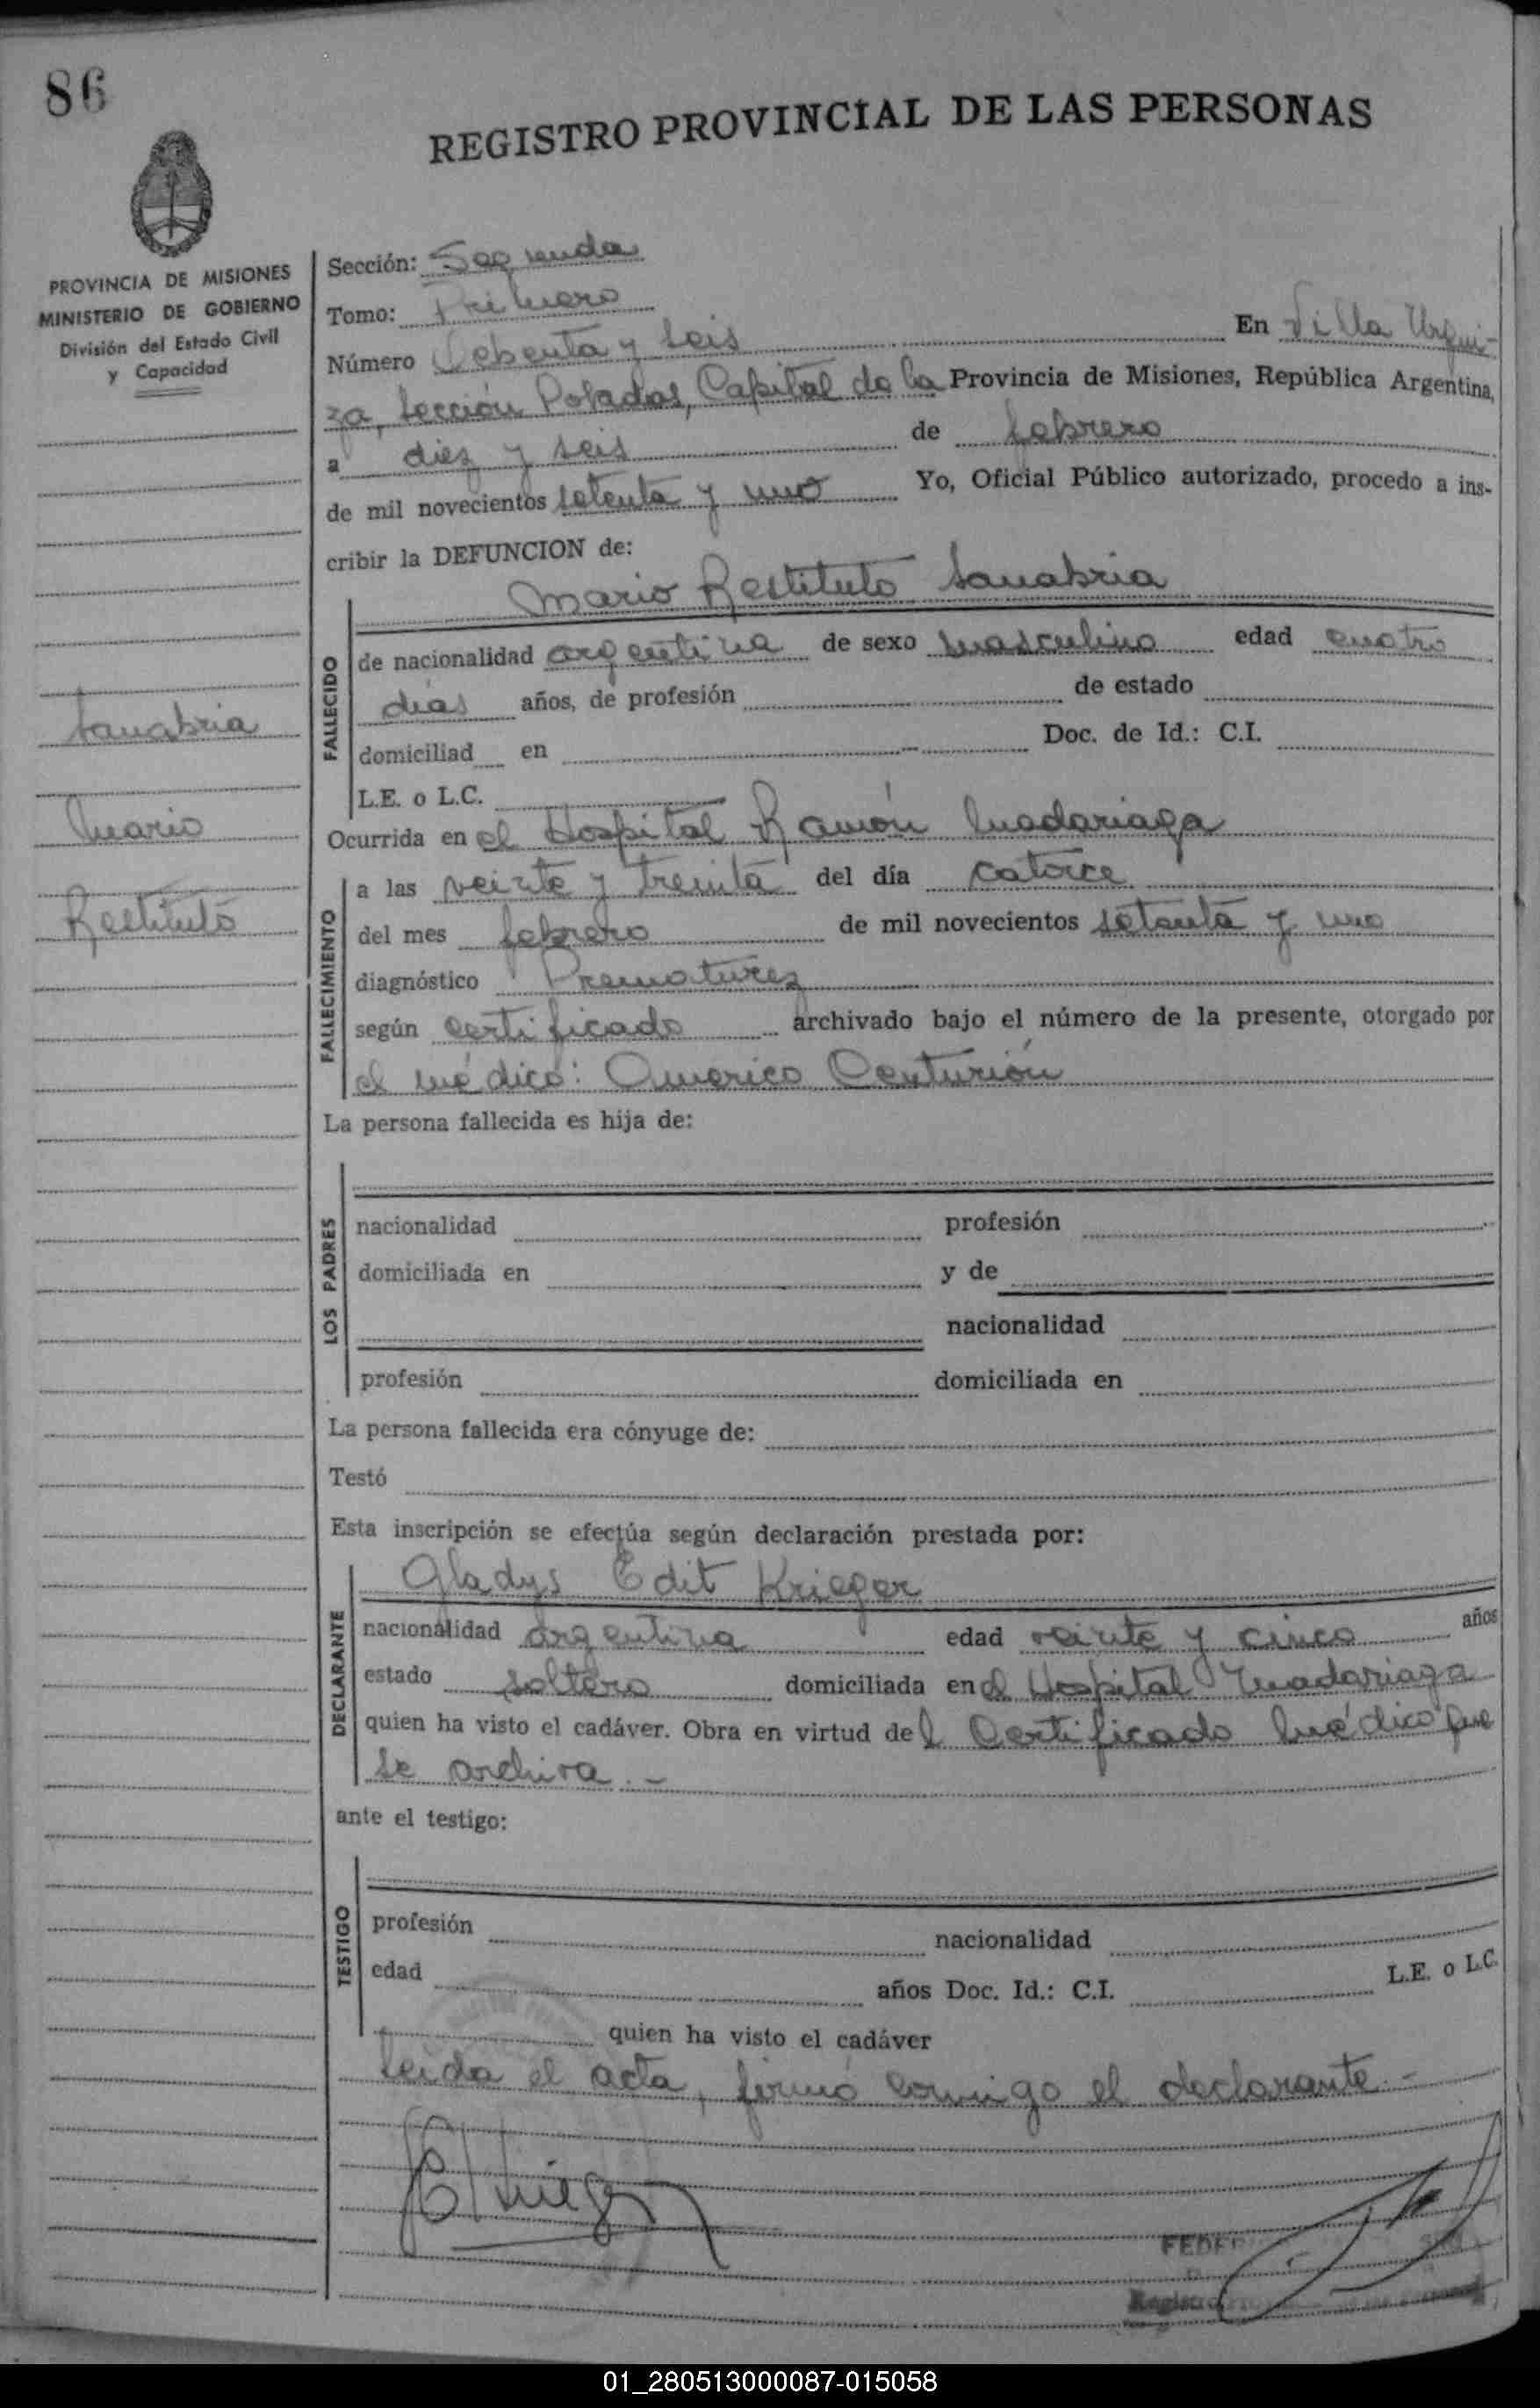 86
REGISTRO PROVINCIAL DE LAS PERSONAS
PROVINCIA DE MISIONES
MINISTERIO DE GOBIERNO
División del Estado Civil
y Capacidad
Sección: Segunda
Tomo: Primero
Número Ochenta y seis En Villa Urqui-
za, sección Posadas, Capital de la Provincia de Misiones, República Argentina,
a diez y seis de febrero
de mil novecientos setenta y uno Yo, Oficial Público autorizado, procedo a ins-
cribir la DEFUNCION de:
Mario Restituto Sanabria
FALLECIDO
de nacionalidad argentina de sexo masculino edad cuatro
días años, de profesión de estado
domiciliad en Doc. de Id.: C.I.
L.E. o L.C.
Sanabria
Mario
Restituto
Ocurrida en el Hospital Ramón Madariaga
FALLECIMIENTO
a las veinte y treinta del día catorce
del mes febrero de mil novecientos setenta y uno
diagnóstico Prematurez
según certificado archivado bajo el número de la presente, otorgado por
el médico: Americo Centurión
La persona fallecida es hija de:
LOS PADRES
nacionalidad profesión
domiciliada en y de
nacionalidad
profesión domiciliada en
La persona fallecida era cónyuge de:
Testó
Esta inscripción se efectúa según declaración prestada por:
DECLARANTE
Gladys Edit Krieger
nacionalidad argentina edad veinte y cinco años
estado soltero domiciliada en el Hospital Madariaga
quien ha visto el cadáver. Obra en virtud del Certificado Médico que
se archiva.-
ante el testigo:
TESTIGO
profesión nacionalidad
edad años Doc. Id.: C.I. L.E. o L.C.
quien ha visto el cadáver
Leida el acta, firmó conmigo el declarante.-
01_280513000087-015058